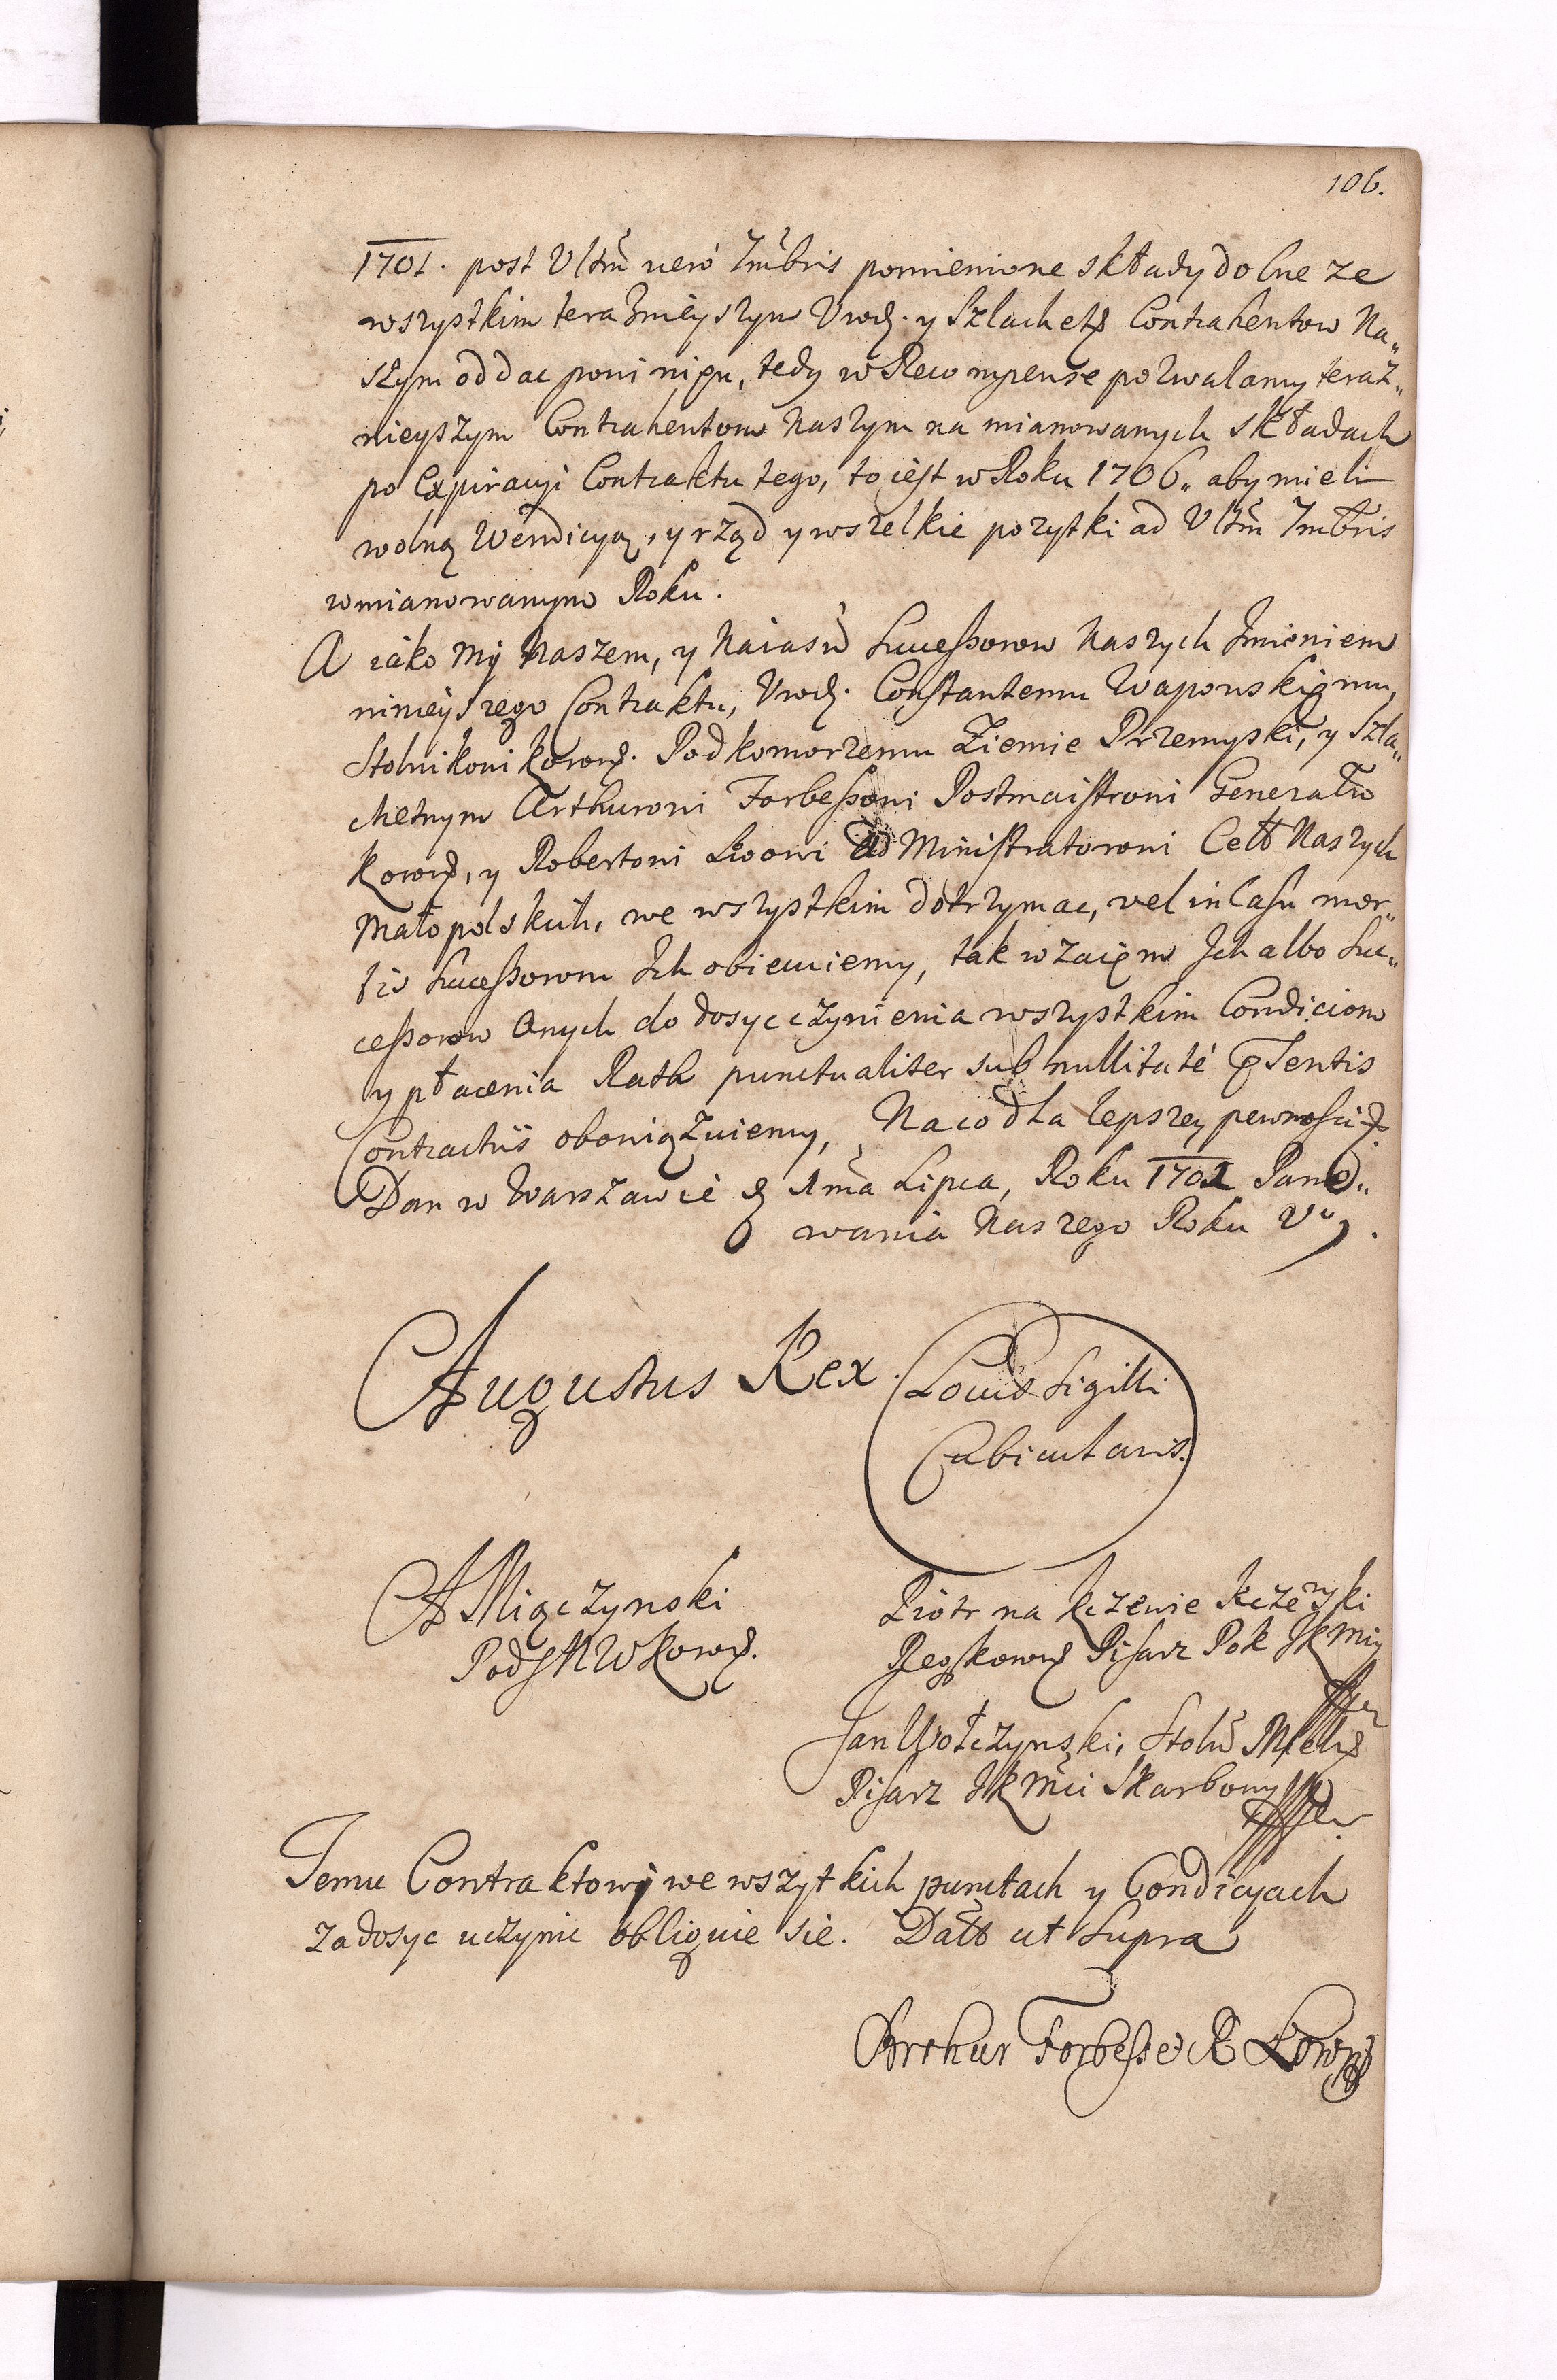 106.
1701. post Ultim vero 7mbris pomienione składy dolne ze
wszystkim teraznieyszym Urodz. y Szlachetn Contrahentow Na„
szym oddac powinien, tedy w Recompense pozwalamy teraz„
nieyszym Contrahentom Naszym na mianowanych składach
po Expiracyi Contraktu tego, to iest w Roku 1706„ aby mieli
wolną Wendicyą, y rząd y wszelkie pozytki ad Ultim 7mbris
w mianowanym Roku.
A iako My Naszem, y Naiasn Successorow Naszych Imieniem
ninieyszego Contraktu, Urodz. Constantemu Wapowskiemu,
Stolnikowi Koron. Podkomorzemu Ziemie Przemyski, y Szla„
chetnym Arthurowi Forbessowi Postmaistrowi Generaln
Koron, y Robertowi Administratorowi Cell Naszych
Małopolskich, we wszystkim dotrzymac, vel in Casu mor„
tis Successorom Ich obiecuiemy, tak wzaięm Ich albo Suc„
cessorow Onych do dosyc czynienia wszystkim Condiciom
y płacenia Rath punctualiter sub nullitate pntis
Contractus obowiązuiemy, Na co dla lepszey pewnosci
Dan w Warszawie d 1ma Lipca, Roku 1701 Pano„
wania Naszego Roku V
Augustus Rex.
Locus Sigilli
Cubicularis.
A Miączynski
Pods N W Koron.
Piotr na Kczewie Kczewski
Pisarz Pok JKMći
Jan Wołczynski, Stoln
Pisarz JKMći Skarbowy
Temu Contraktowi we wszytkich punctach y Condicyach
zadosyc uczynic obliguie sie. Datt ut Supra
Arthur Forbesse R